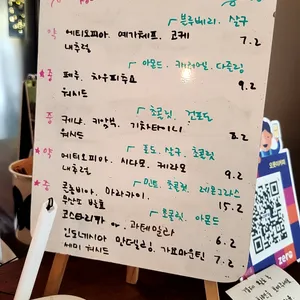 블루베리, 살구
약 에티오피아, 예가체프, 코케 7.2
내추럴
아몬드, 캬라멜, 다즐링
★중 페루, 차우피
워시드 9.2
초콜릿, 건포도
중 케냐, 키암부, 기차타이니 8.2
워시드
포도, 살구, 초콜릿
★약 에티오피아, 시다모, 게라모 9.2
내추럴
민트, 초콜릿, 레몬그라스
★중 콜롬비아, 마라카이, 15.2
무산소 발효
초콜릿, 아몬드
코스타리카 or, 과테말라 6.2
인도네시아 만델링, 가요마운틴 7.2
세미 워시드
zero